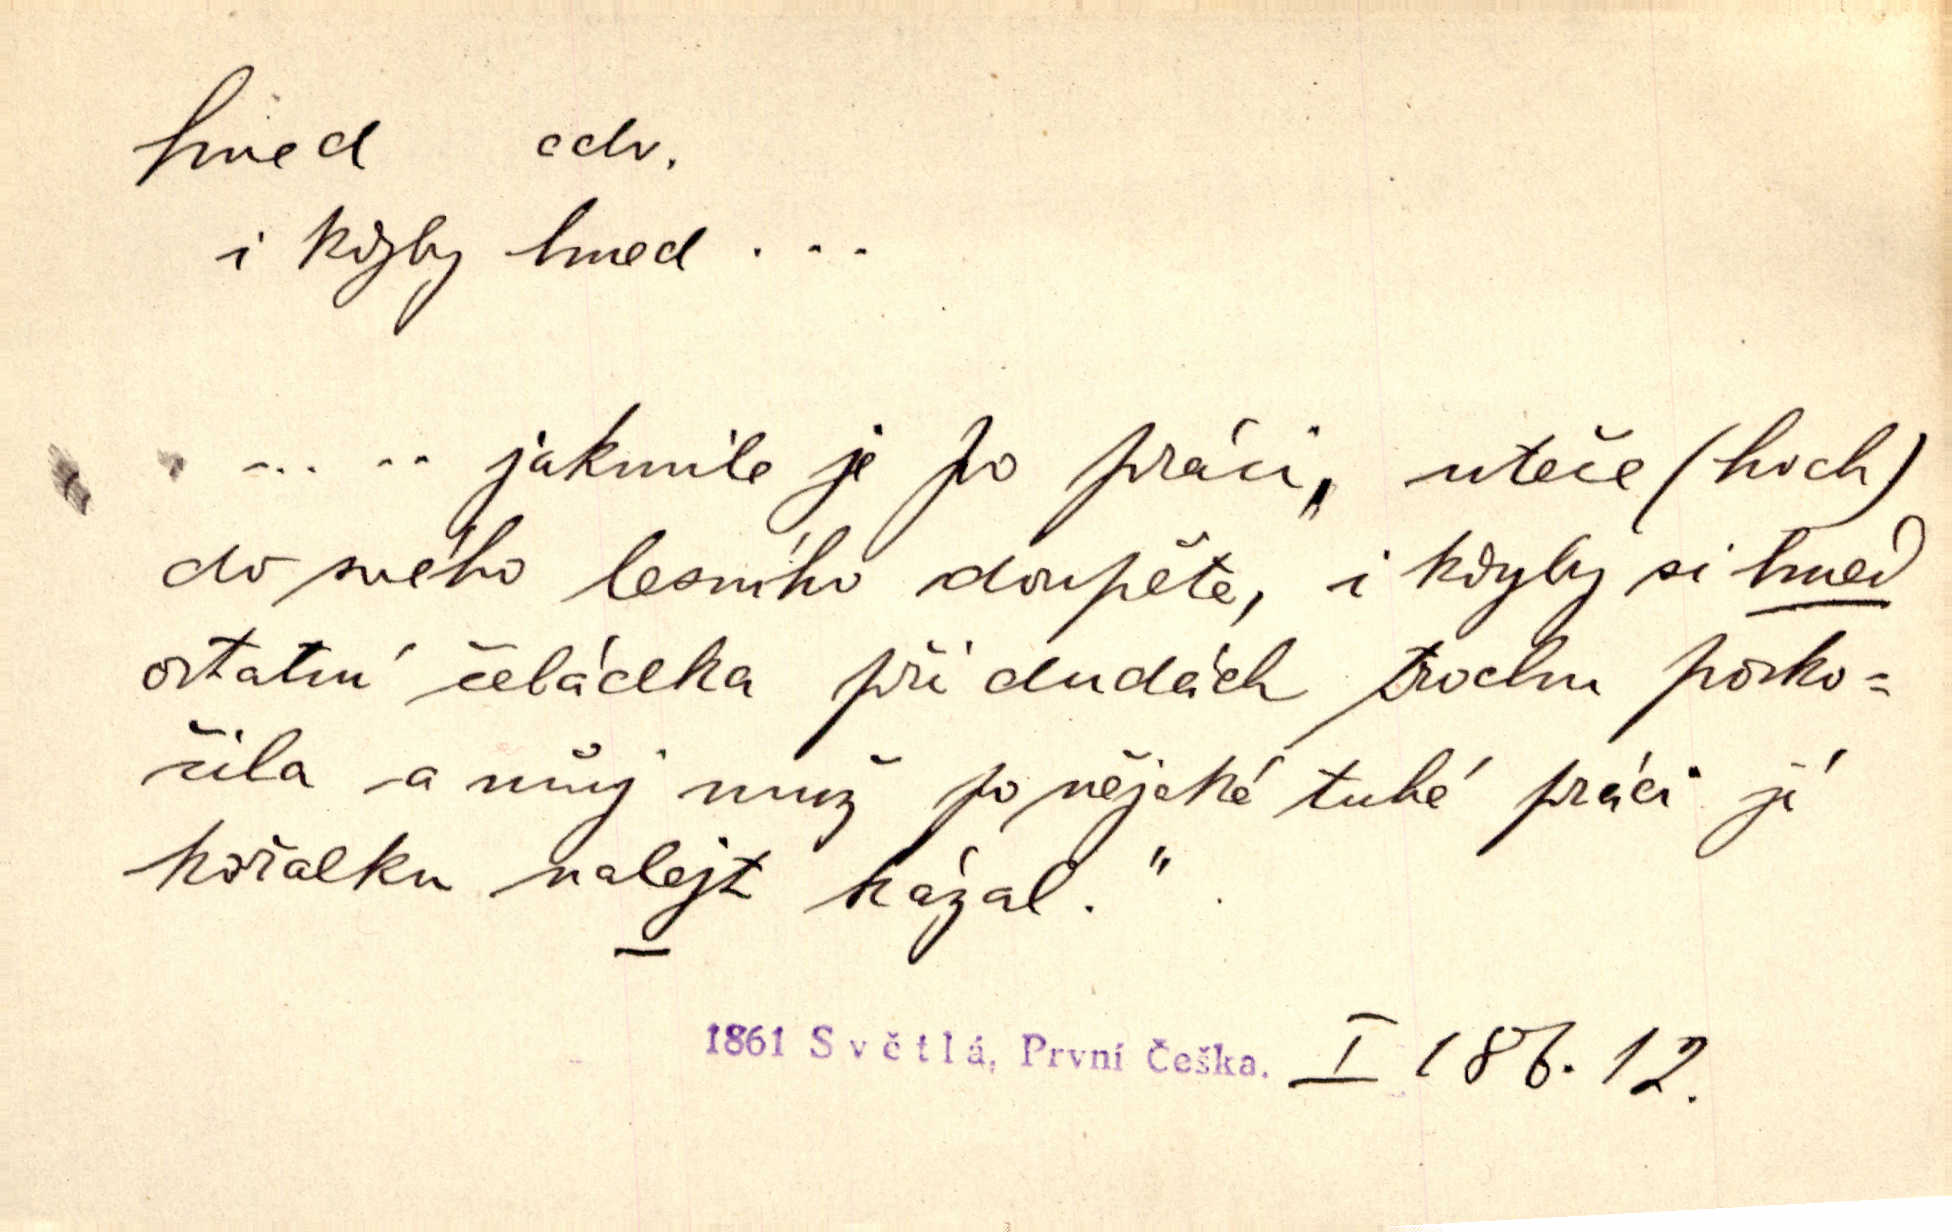 hned adv.
i kdyby hned ...
... .. jakmile je po práci, „uteče (hoch)
do svého lesního doupěte, i kdyby si hned
ostatní čeládka při dudách trochu posko=
čila a můj muž po nějaké tuhé práci jí
kořalku nalejt kázal."
1861 Světlá, První Češka. I 186. 12.